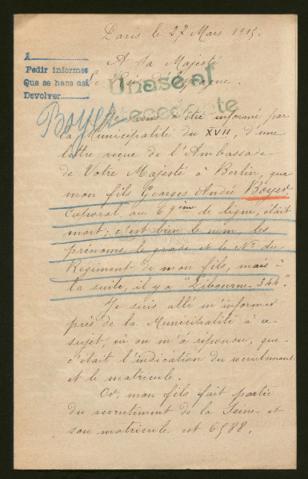 Paris le 27 Mars 1915.
A
Pedir informes
Que se haga así
Devolver
A Sa Majesté
le Roi d'Espagne
Unase al
expediente
Boyer
être informé par
la Municipalité du XVII, d'une
lettre reçue de l'Ambassade
de Votre Majesté à Berlin, que
mon fils Georges André Boyer
Caporal au 69ième de ligne, était
mort; c'est bien le nom, les
prénoms, le grade et le No du
Régiment de mon fils, mais à
la suite, il y a "Libourne 344."
Je suis allé m'informer
près de la Municipalité à ce
sujet, où on m'a répondu, que
c'était l'indication du recrutement
et le matricule.
Or, mon fils fait partie
du recrutement de la Seine et
son matricule est 6988.